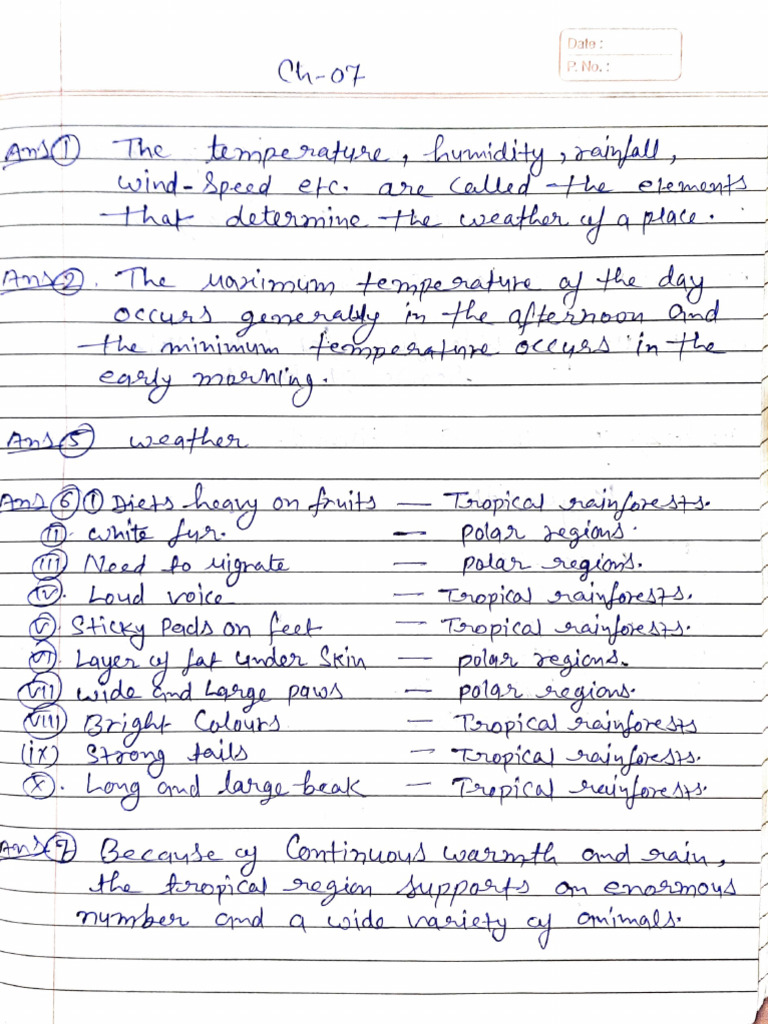 Date :
P. No. :
Ch-07
Ans ① The temperature, humidity, rainfall,
wind-speed etc. are called the elements
that determine the weather of a place.
Ans ②. The maximum temperature of the day
occurs generally in the afternoon and
the minimum temperature occurs in the
early morning.
Ans ⑤ weather
Ans ⑥ (i) Diets heavy on fruits — Tropical rainforests.
(ii). white fur. — polar regions.
(iii) Need to migrate — polar regions.
(iv). Loud voice — Tropical rainforests.
(v). Sticky Pads on feet — Tropical rainforests.
(vi) Layer of fat under Skin — polar regions.
(vii) wide and Large paws — polar regions.
(viii) Bright Colours — Tropical rainforests
(ix) Strong tails — Tropical rainforests.
(x). Long and large beak — Tropical rainforests.
Ans ⑦ Because of Continuous warmth and rain,
the tropical region supports an enormous
number and a wide variety of animals.